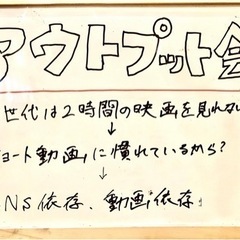 アウトプット会
世代は2時間の映画を見れない
ョート動画に慣れているから?
NS依存、動画依存